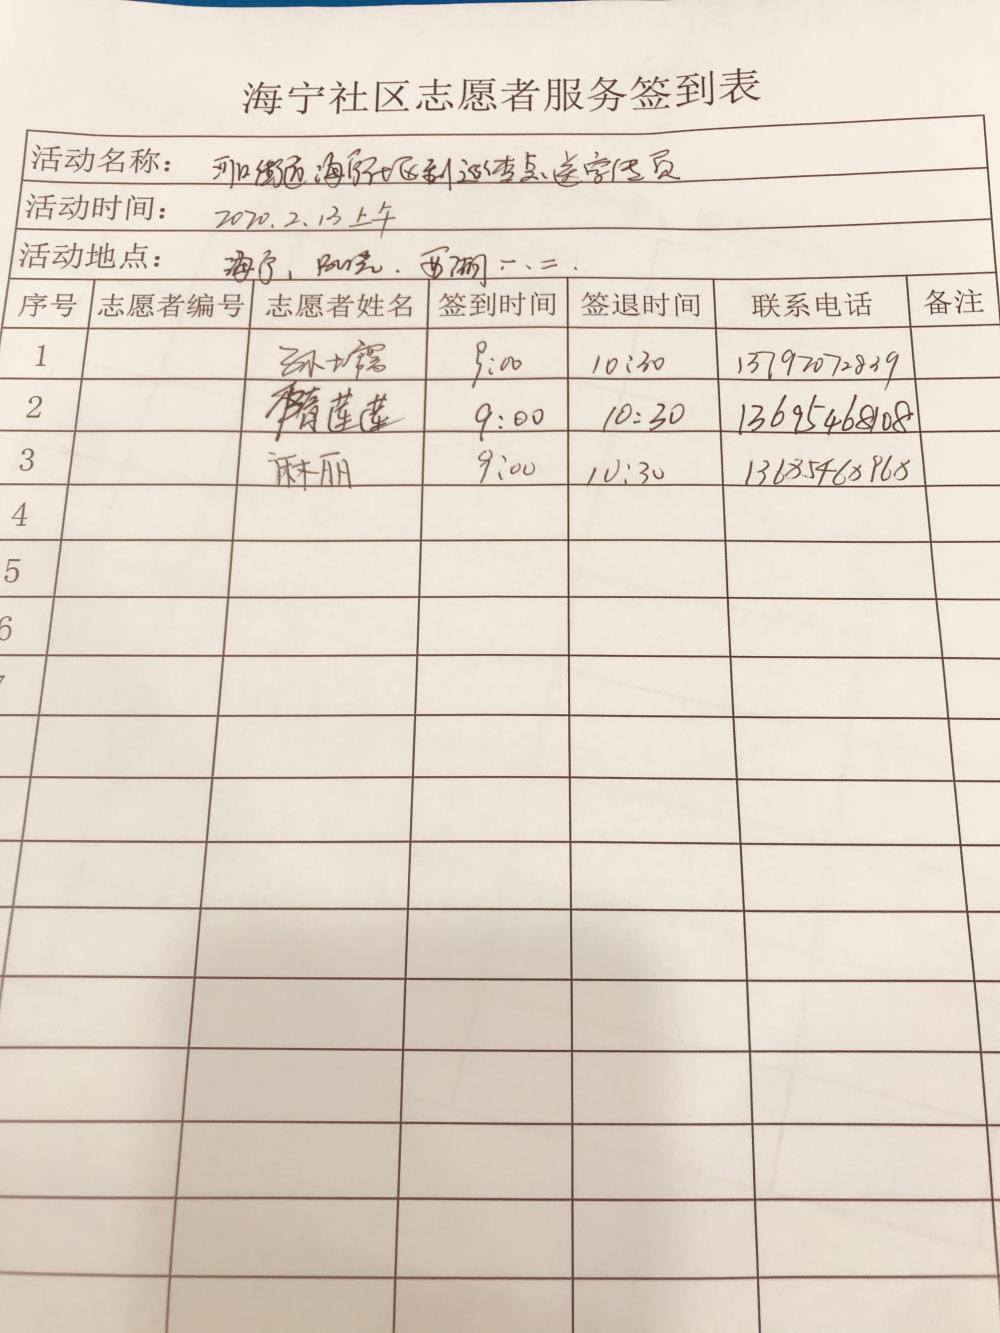 海宁社区志愿者服务签到表
活动名称： 河口街道海宁社区到巡查点送宣传页
活动时间： 2020.2.13上午
活动地点： 海宁、
序号 志愿者编号 志愿者姓名 签到时间 签退时间 联系电话 备注
1 9:00 10:30 13792072839
2 莲莲 9:00 10:30 13695468108
3 麻丽 9:00 10:30 13685468968
4
5
6